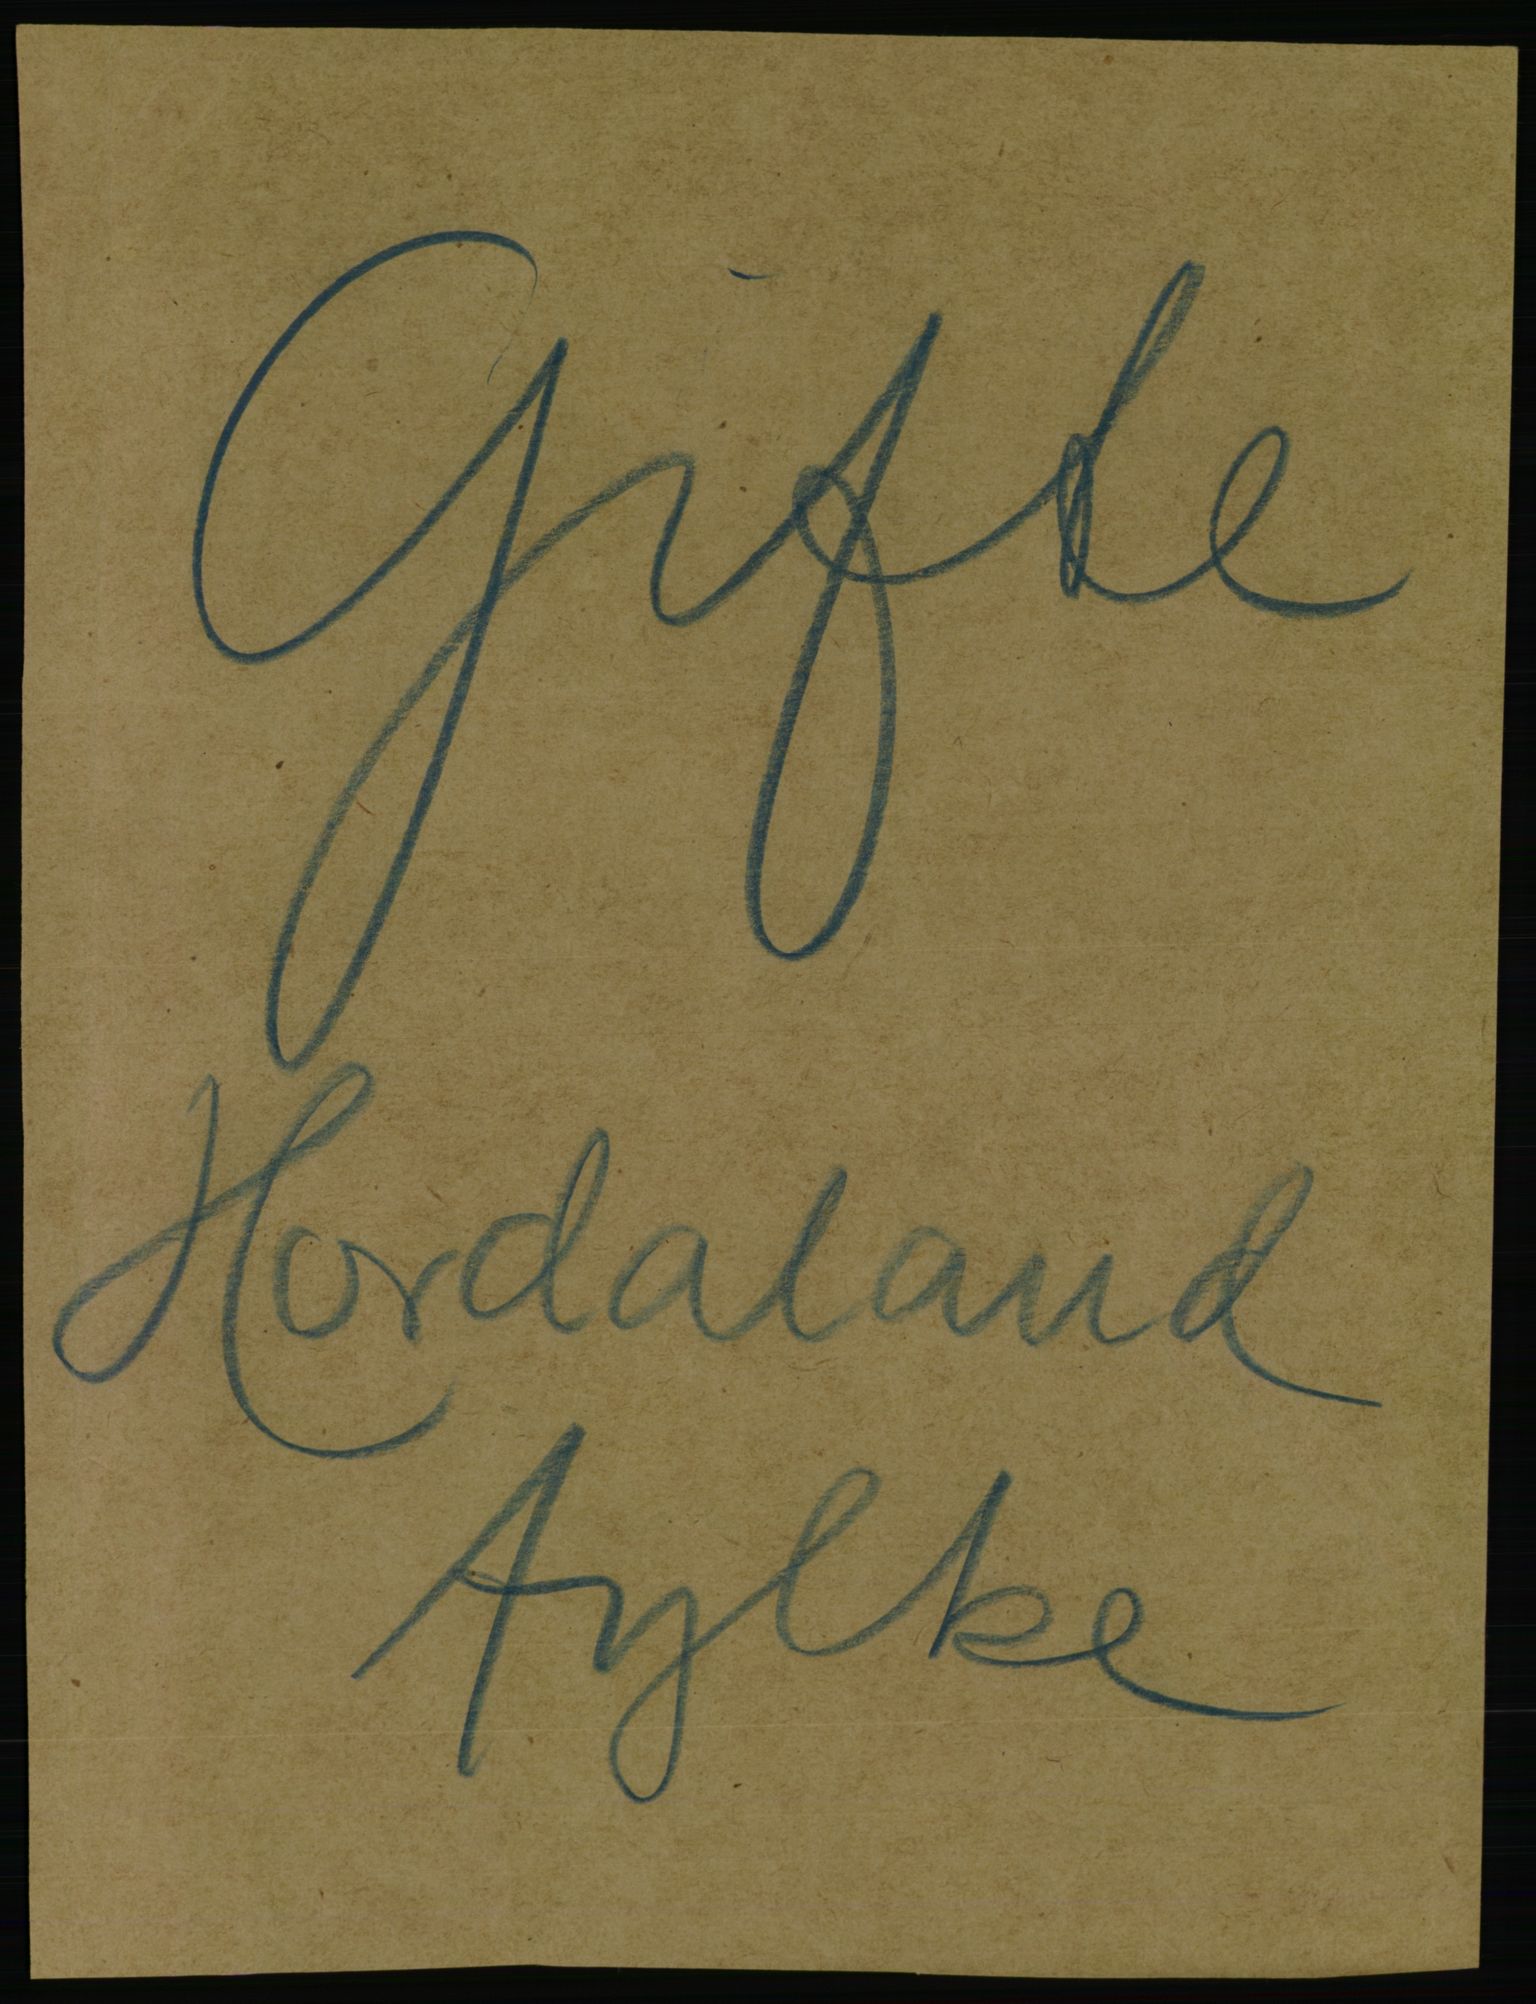 Gifte
Hordaland
fylke